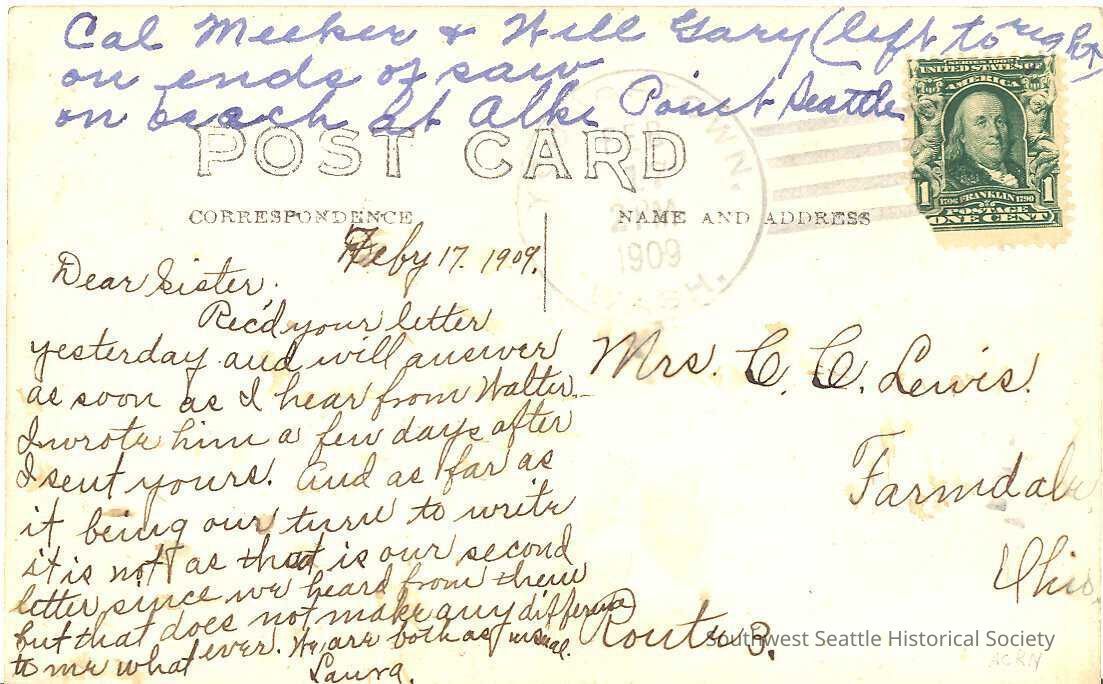 Cal Meeker & Will Gary (left to right
on ends of saw
on beach at Alki Point Seattle
POST CARD
CORRESPONDENCE
NAME AND ADDRESS
SERIES 1902
UNITED STATES OF
AMERICA
1 1706 FRANKLIN 1790 1
POSTAGE
ONE CENT
FEB
17
2 PM
1909
WASH.
Feby 17. 1909.
Dear Sister.
Rec'd your letter
yesterday and will answer
as soon as I hear from Walter.
I wrote him a few days after
I sent yours. And as far as
it being our turn to write
it is not as that is our second
letter since we heard from them
but that does not make any difference
to me what ever. We are both as usual.
Laura.
Mrs. C. C. Lewis.
Farmdale
Ohio.
Route 3.
Southwest Seattle Historical Society